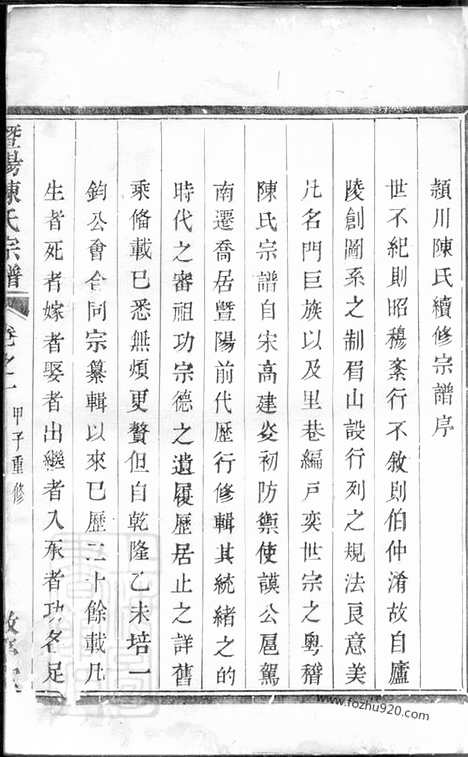 潁川陳氏續修宗譜序
世不紀則昭穆紊行不敘則伯仲淆故自廬
陵創圖系之制眉山設行列之規法良意美
凡名門巨族以及里巷編戶奕世宗之粤稽
陳氏宗譜自宋高建炎初防禦使謨公扈駕
南遷喬居暨陽前代歷行修輯其統緒之的
時代之審祖功宗德之遺履歷居止之詳舊
乘備載已悉無煩更贅但自乾隆乙未培一
鈞公會合同宗纂輯以來已歷二十餘載凡
生者死者嫁者娶者出繼者入泵者功名足
暨陽陳氏宗譜
卷之一
甲子重修
www.fozhu920.com